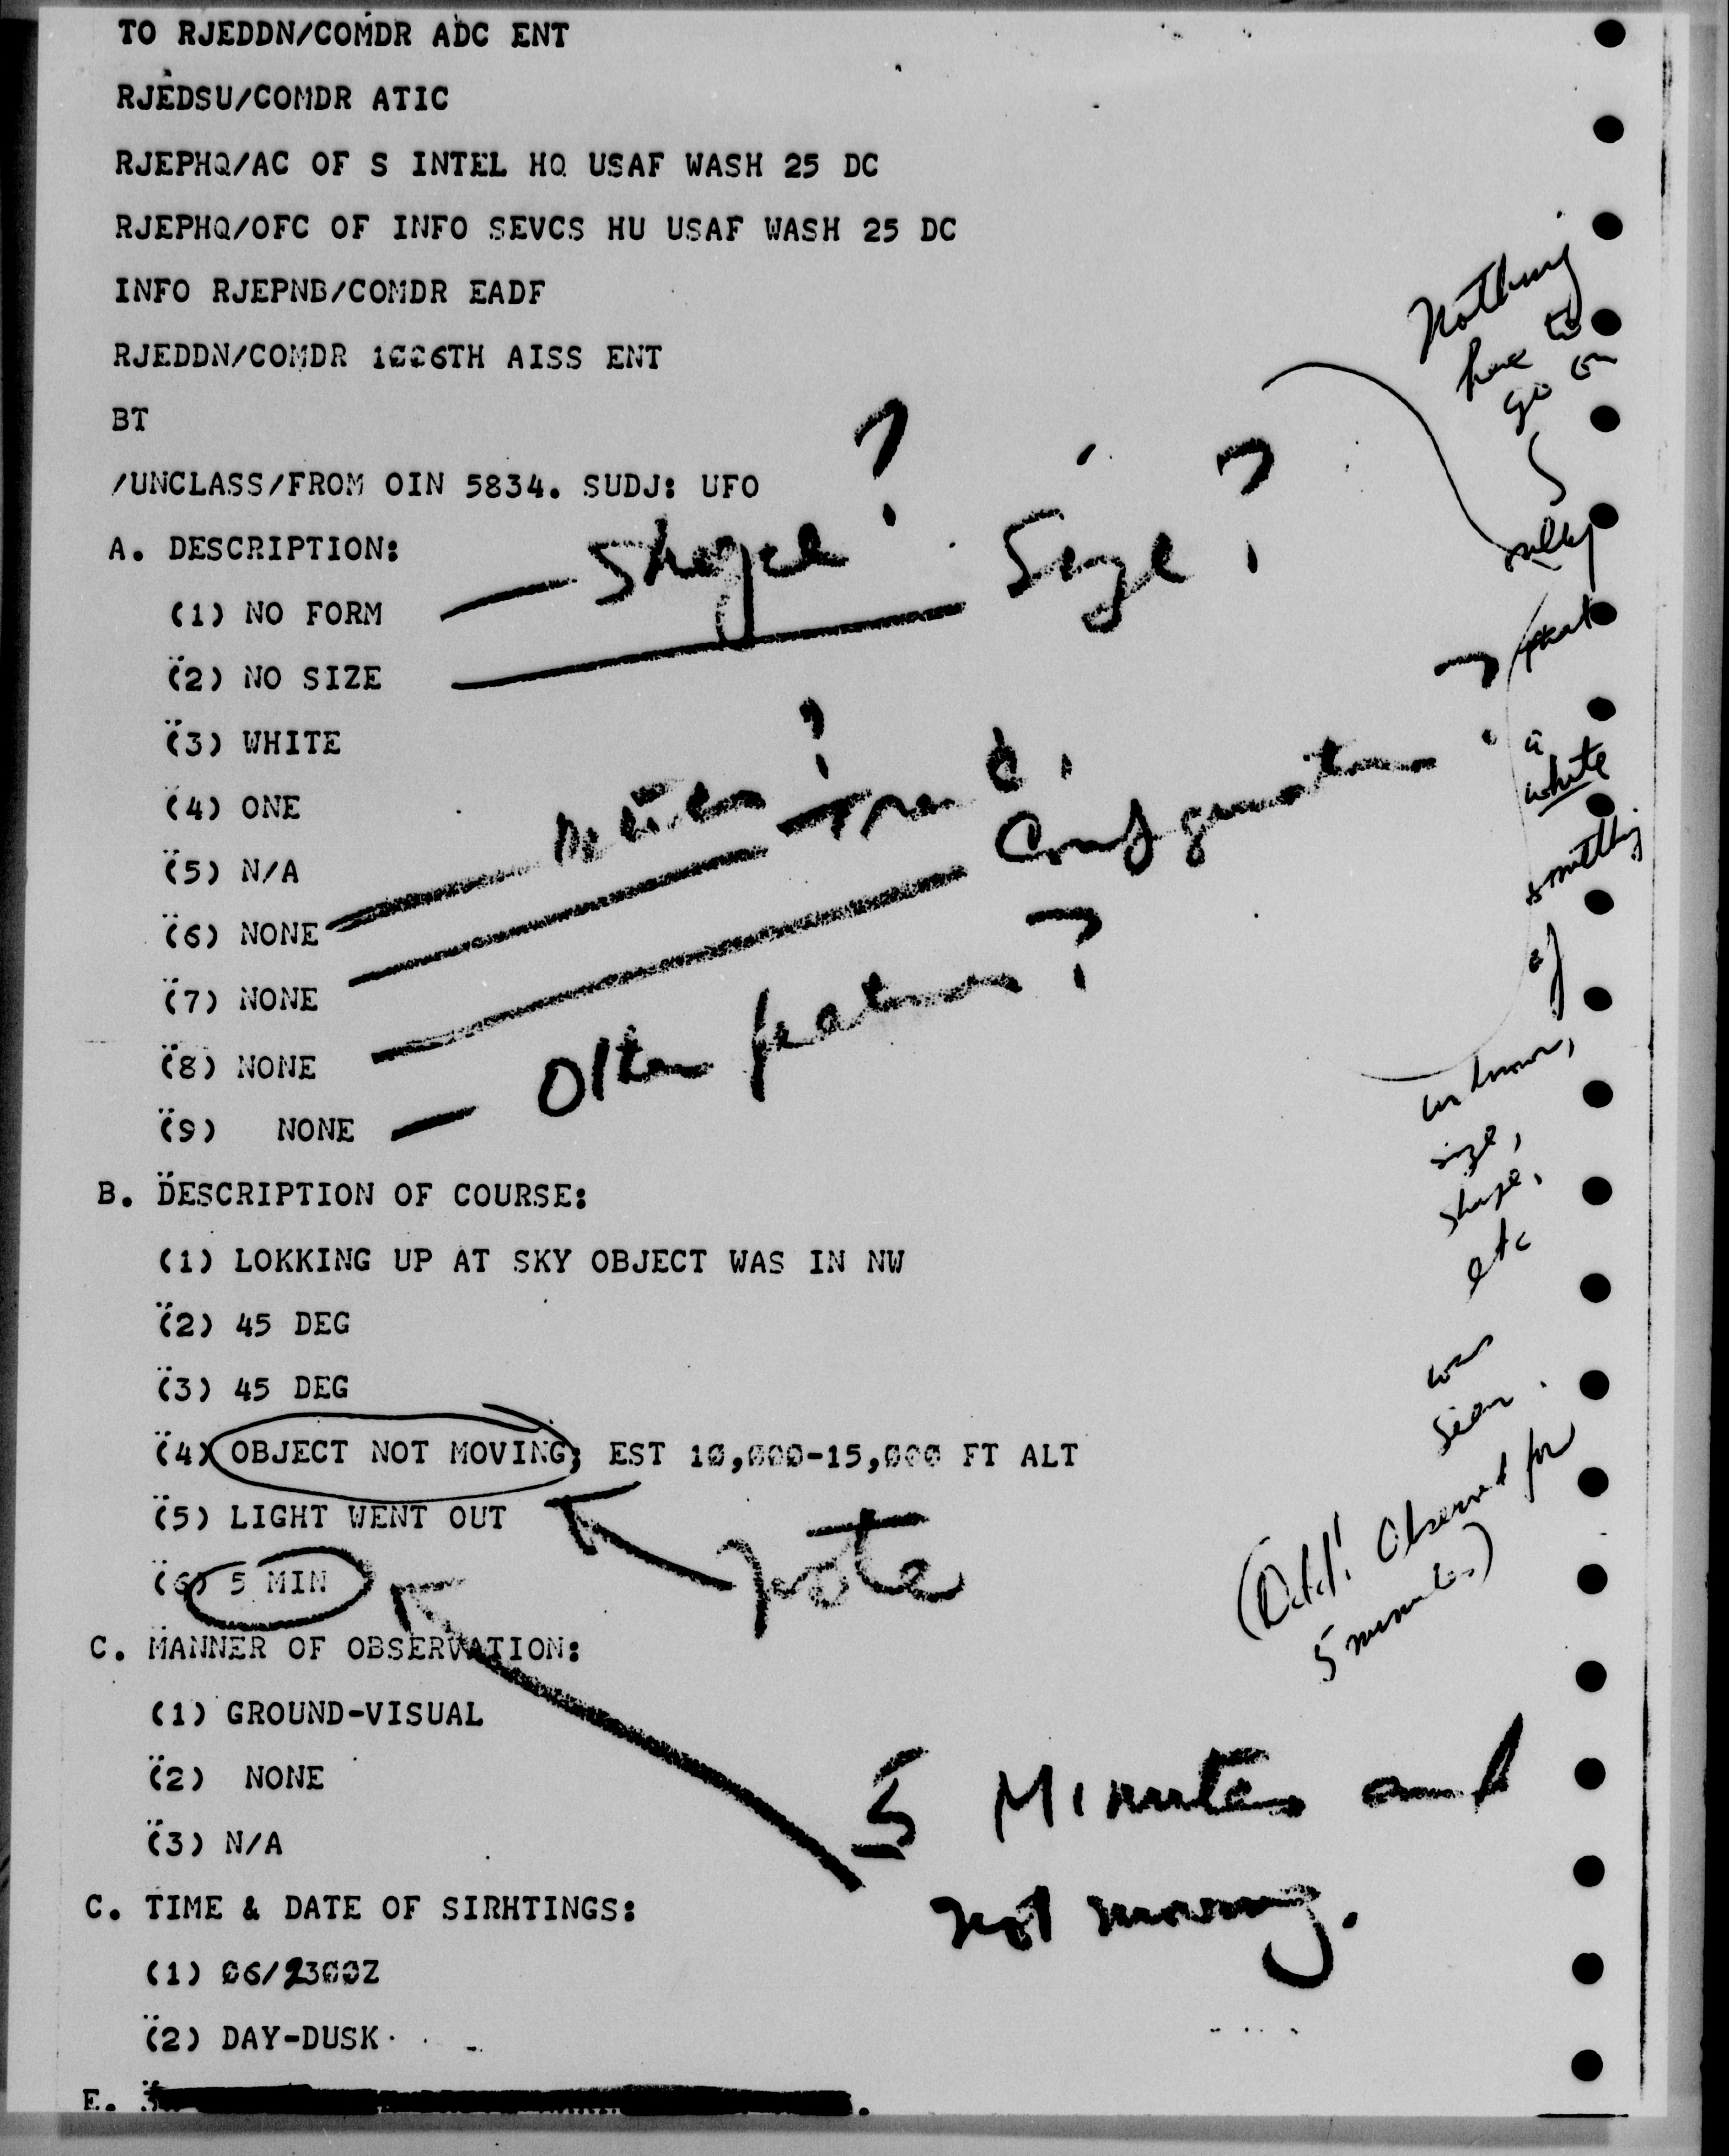 TO RJEDDN/COMDR ADC ENT
RJEDSU/COMDR ATIC
RJEPHQ/AC OF S INTEL HQ USAF WASH 25 DC
RJEPHQ/OFC OF INFO SEVCS HU USAF WASH 25 DC
INFO RJEPNB/COMDR EADF
RJEDDN/COMDR 1006TH AISS ENT
BT
/UNCLASS/FROM OIN 5834. SUDJ: UFO
A. DESCRIPTION:
(1) NO FORM — Shape?
(2) NO SIZE — Size?
(3) WHITE
(4) ONE
(5) N/A
(6) NONE
(7) NONE
(8) NONE — Configuration
(9) NONE — Other features?
B. DESCRIPTION OF COURSE:
(1) LOKKING UP AT SKY OBJECT WAS IN NW
(2) 45 DEG
(3) 45 DEG
(4) OBJECT NOT MOVING; EST 10,000-15,000 FT ALT
(5) LIGHT WENT OUT
Note
(6) 5 MIN
C. MANNER OF OBSERVATION:
(1) GROUND-VISUAL
(2) NONE
(3) N/A
5 Minutes and
not moving.
C. TIME & DATE OF SIRHTINGS:
(1) 06/2300Z
(2) DAY-DUSK
E.
Nothing
here to
go on
that
a
white
something
of
unknown,
size,
shape,
etc
was
seen.
(Odd! Observed for
5 minutes)